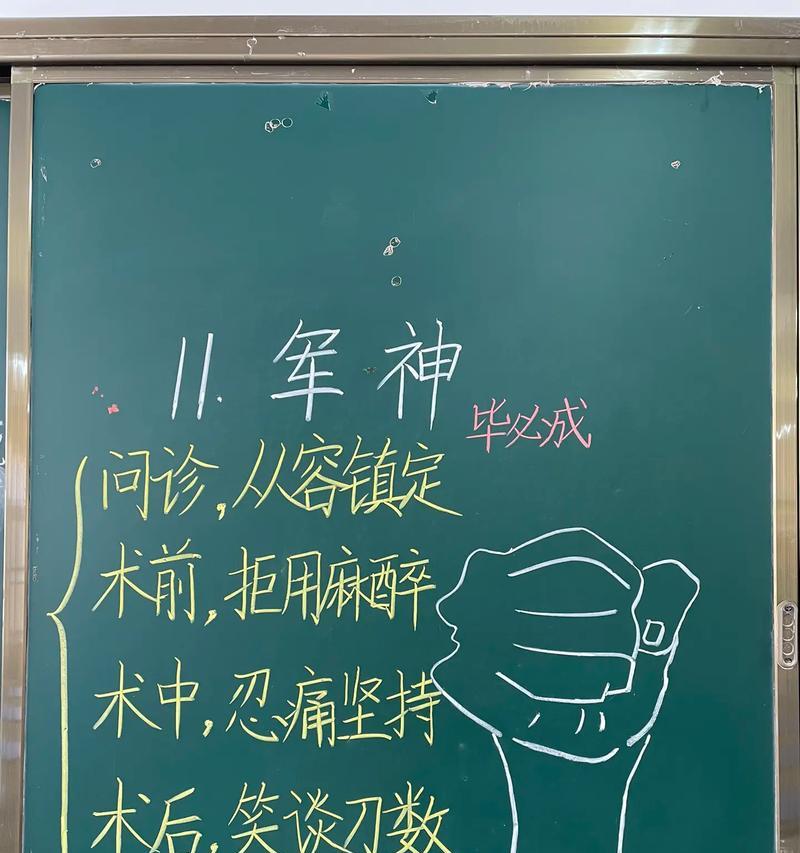 11. 军神
毕必成
问诊,从容镇定
术前,拒用麻醉
术中,忍痛坚持
术后,笑谈刀数